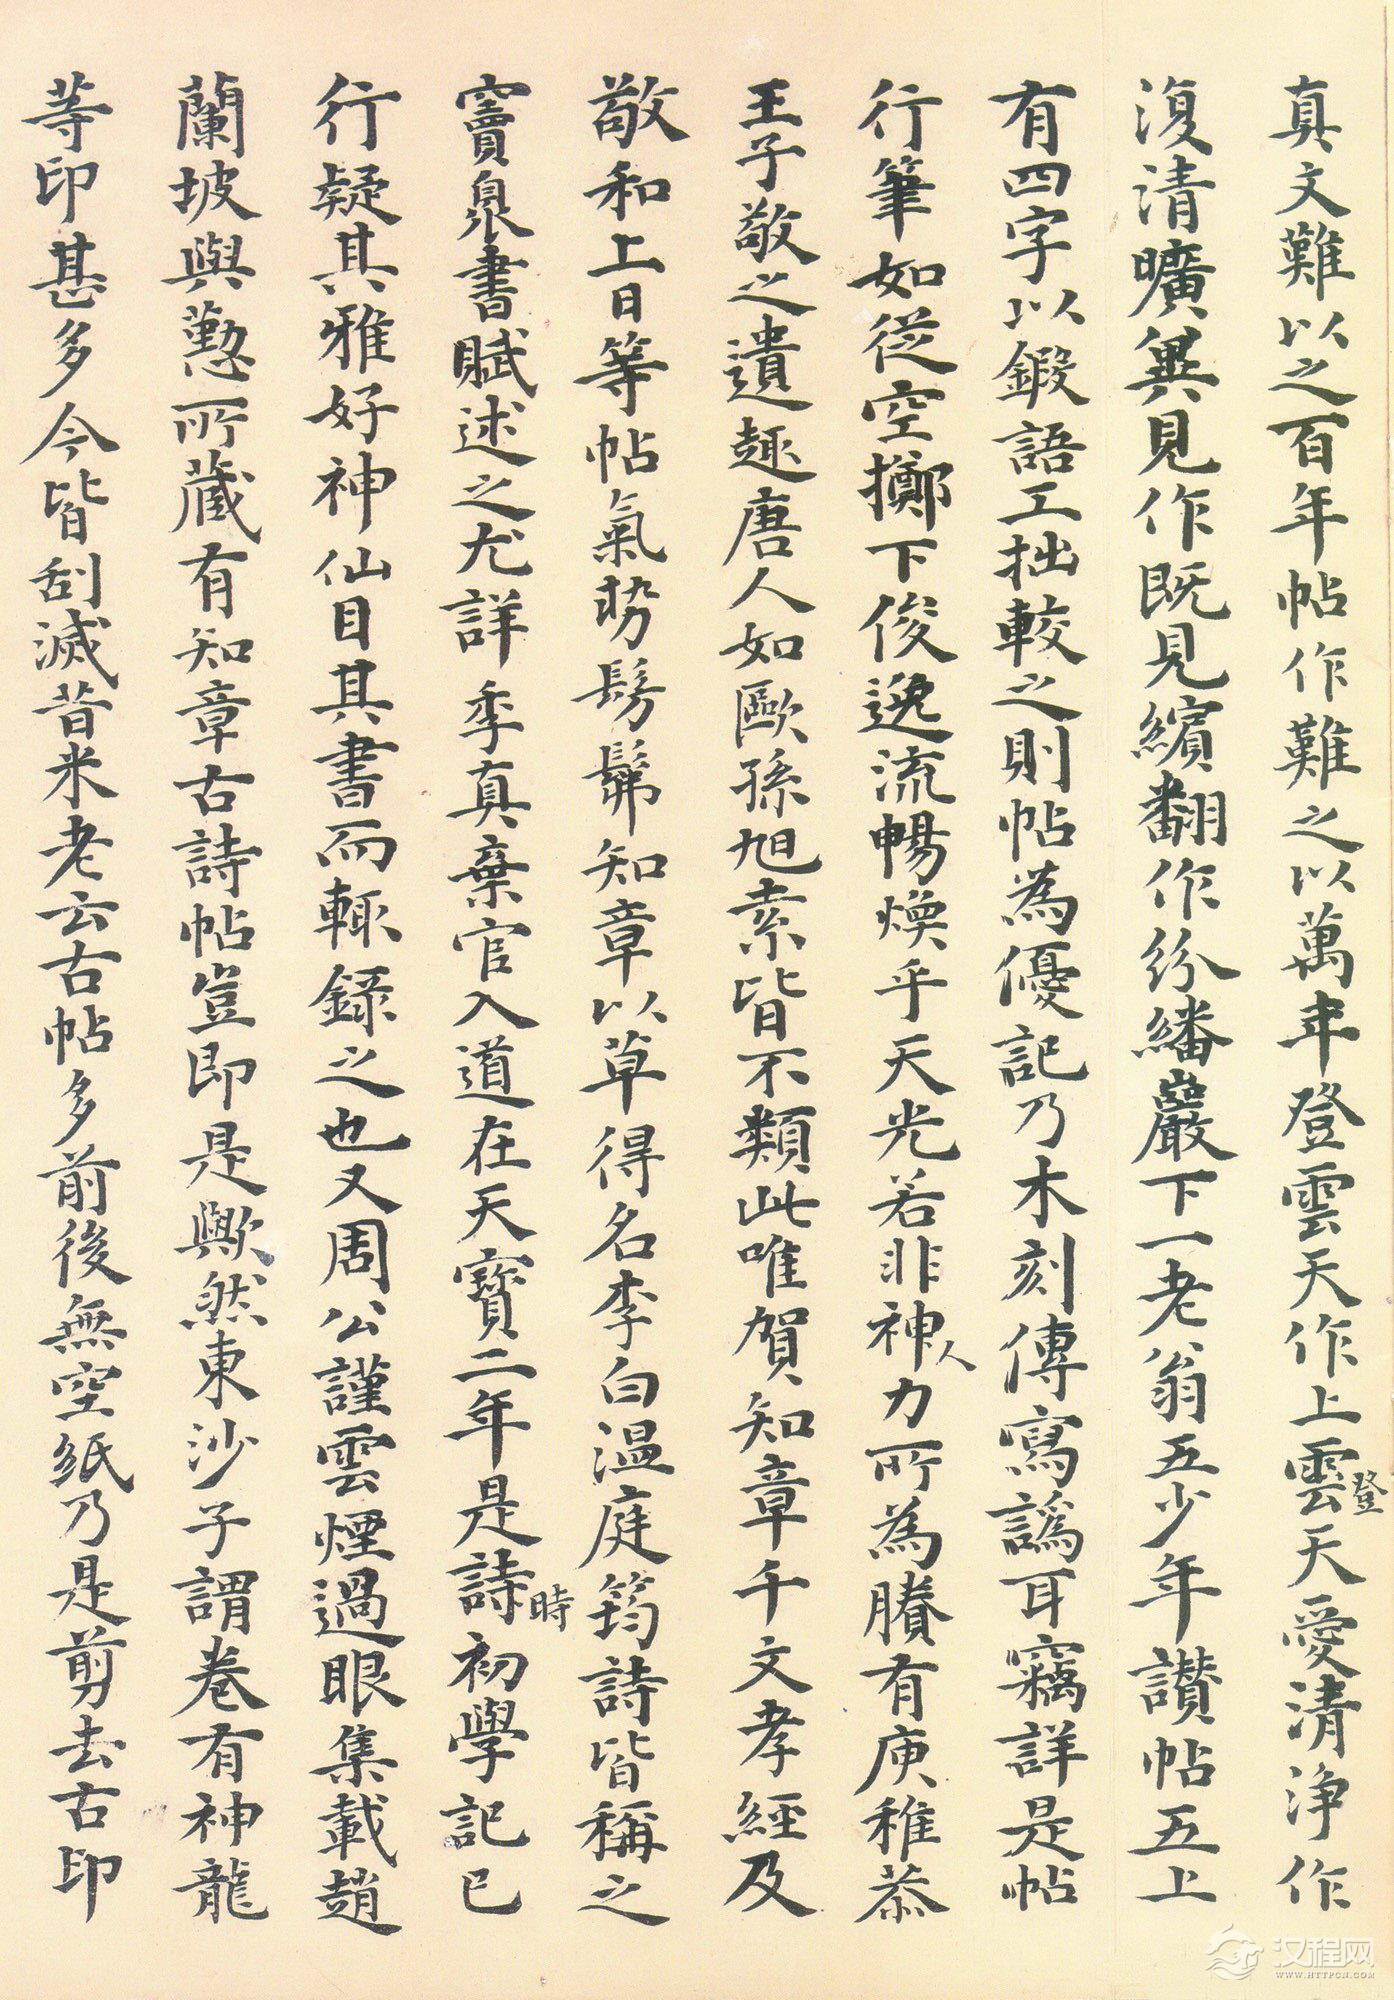 真文難以之百年帖作難之以萬年登雲天作上雲登天愛清淨作
復清曠異見作既見繽翻作紛繙巖下一老翁五少年讚帖五上
有四字以鍛語工拙較之則帖為優記乃木刻傳寫譌耳竊詳是帖
行筆如從空擲下俊逸流暢煥乎天光若非神人力所為賸有庾稚恭
王子敬之遺趣唐人如歐孫旭素皆不類此唯賀知章千文孝經及
敬和上日等帖氣勢髣髴知章以草得名李白溫庭筠詩皆稱之
竇臮書賦述之尤詳季真棄官入道在天寶二年是詩時初學記已
行疑其雅好神仙目其書而輒錄之也又周公謹雲煙過眼集載趙
蘭坡與懃所藏有知章古詩帖豈即是歟然東沙子謂卷有神龍
等印甚多今皆刮滅昔米老云古帖多前後無空紙乃是剪去古印
汉程网
WWW.HTTPCN.COM